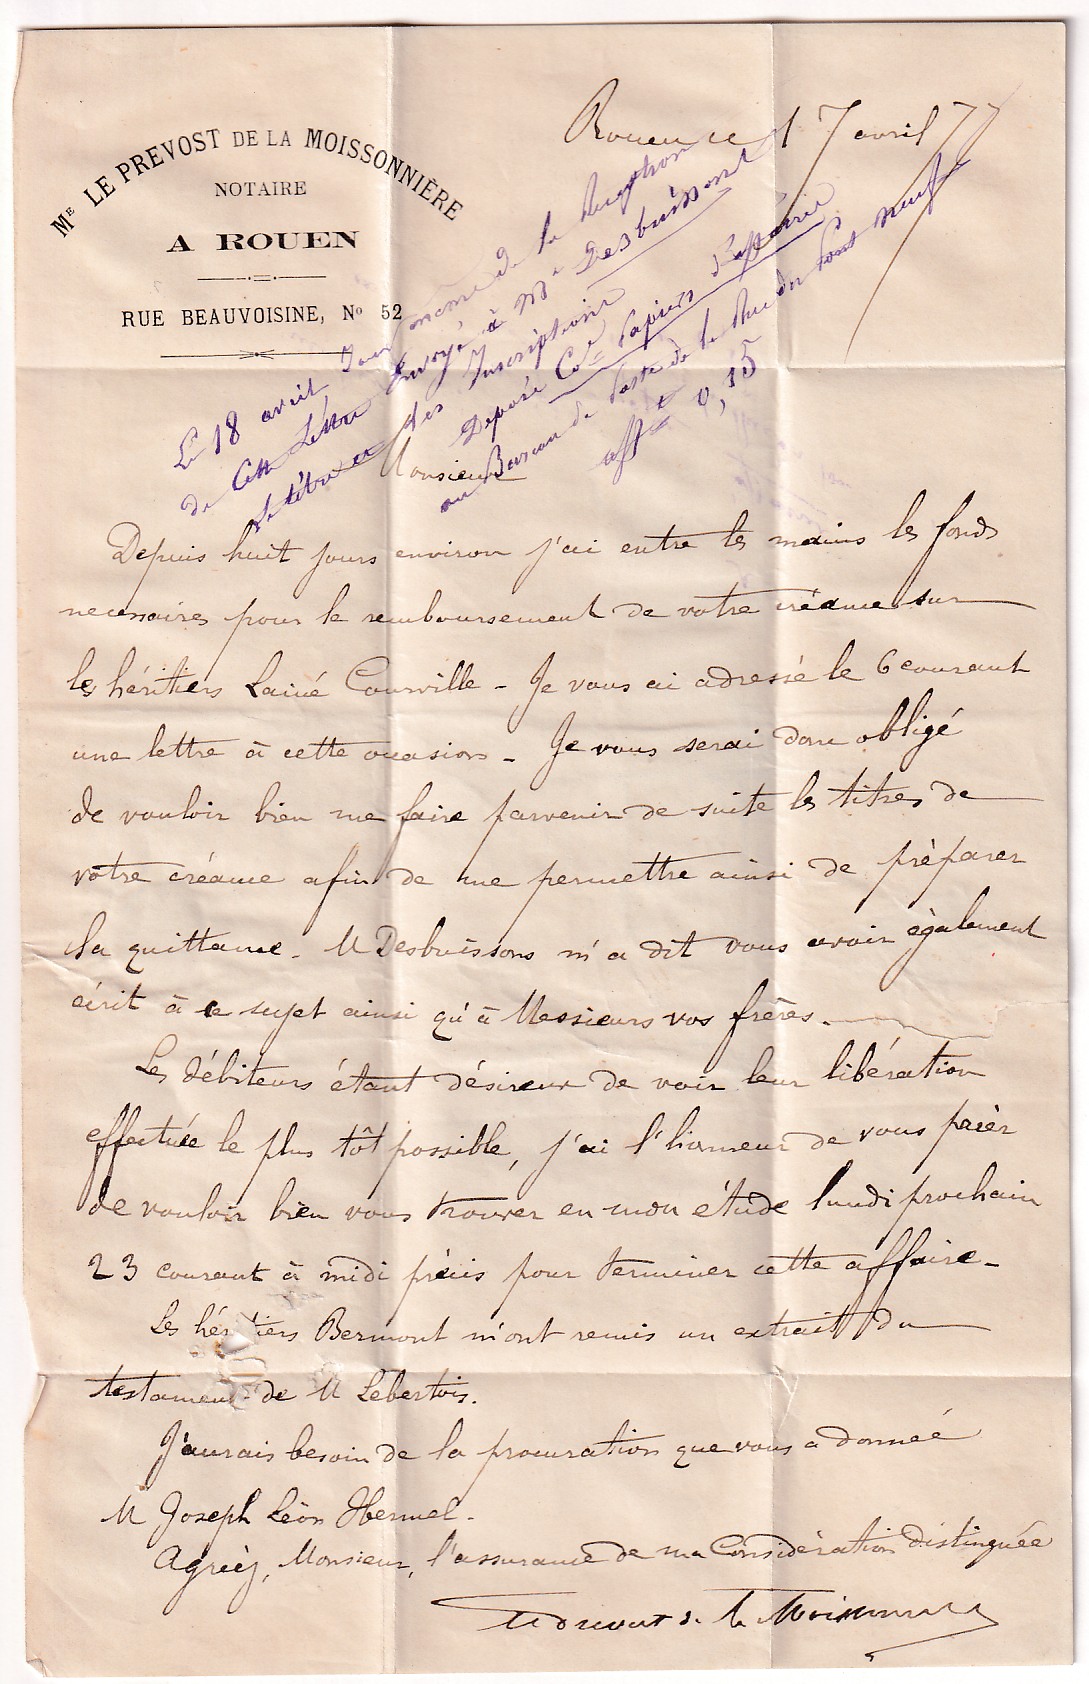 Me LE PREVOST DE LA MOISSONNIÈRE
NOTAIRE
A ROUEN
RUE BEAUVOISINE, No 52
Rouen le 17 avril 77
Le 18 avril Jour même de la Réception
de cette Lettre Envoyé à Me Desbuissons
Le titre et les Inscriptions
Déposé Ce Papiers d'affaires
au Bureau de Poste de la Rue du Pont neuf
afft 0,15
Monsieur
Depuis huit jours environ j'ai entre les mains les fonds
necessaires pour le remboursement de votre créance sur
les héritiers Lainé Courville - Je vous ai adressé le 6 courant
une lettre à cette occasion - Je vous serai donc obligé
de vouloir bien me faire parvenir de suite les titres de
votre créance afin de me permettre ainsi de préparer
la quittance - M Desbuissons m'a dit vous avoir également
écrit à ce sujet ainsi qu'à Messieurs vos frères.
Les débiteurs étant désireux de voir leur libération
effectuée le plus tôt possible, j'ai l'honneur de vous prier
de vouloir bien vous trouver en mon étude lundi prochain
23 courant à midi précis pour terminer cette affaire -
Les héritiers Bermont m'ont remis un extrait du
testament de M Lebertois.
J'aurais besoin de la procuration que vous a donnée
M Joseph Léon Hermel -
Agréez, Monsieur, l'assurance de ma Considération distinguée
Le Prevost de la Moissonnière